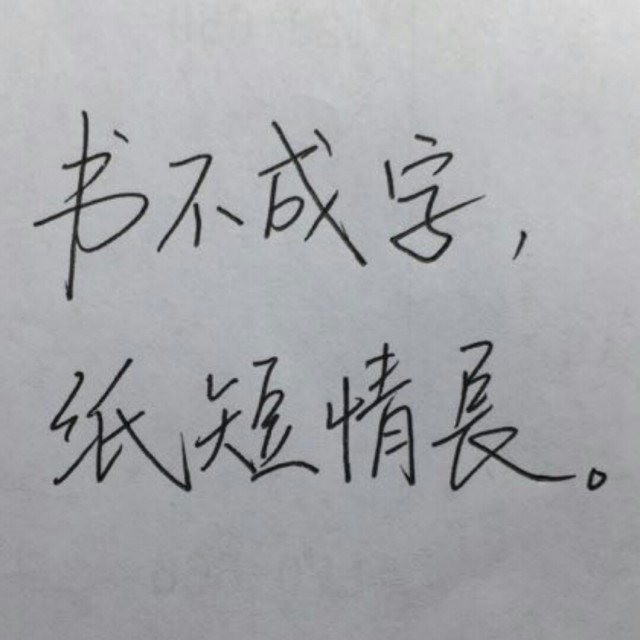 书不成字，
纸短情長。